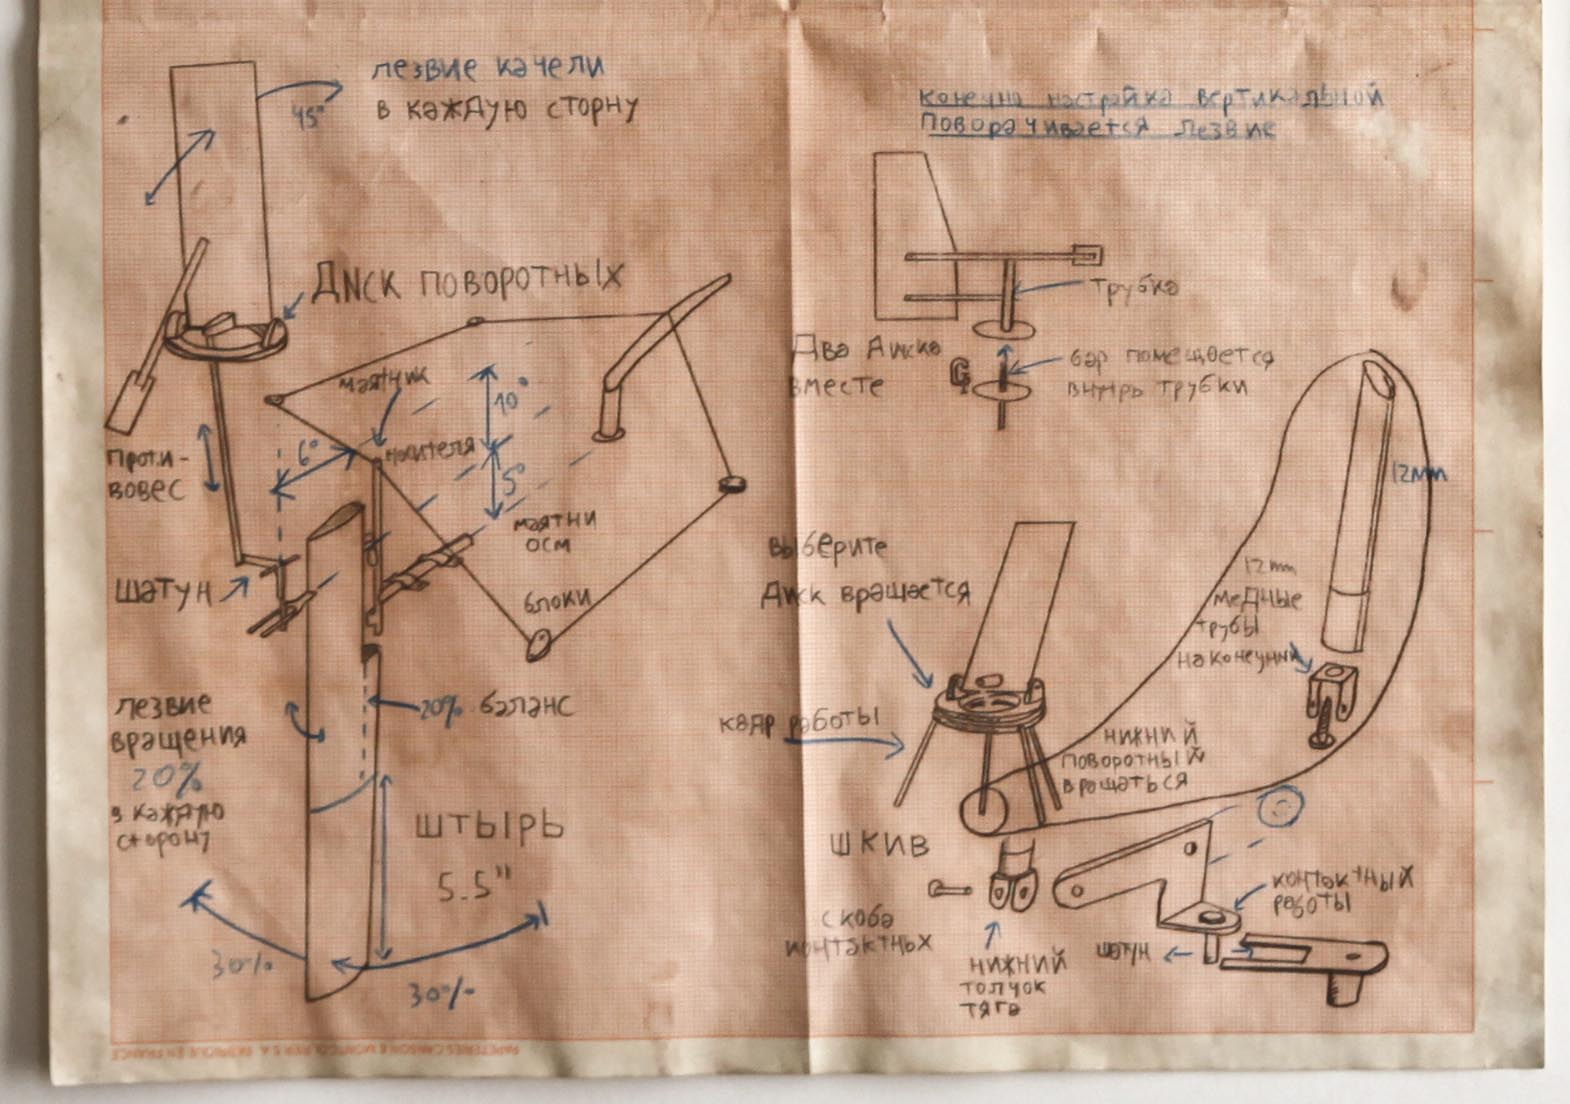 лезвие качели
в каждую сторну
45°
Диск поворотных
маятчик
10°
6°
носителя
5°
Проти-
вовес
маятни
осм
шатун
блоки
лезвие
вращения
20%
в каждую
сторону
20% баланс
штырь
5.5"
30%
30%
конечно настройка вертикальной
поворачивается лезвие
трубка
Два диска
вместе
бар помещается
внутрь трубки
12mm
выберите
Диск вращается
12mm
медные
трубы
наконечник
квар работы
нижний
поворотный
вращаться
шкив
контактных
работы
скоба
контактных
нижний
толчок
тяга
шатун
PAPETERIES CANSON & MONTGOLFIER S.A. FABRIQUE EN FRANCE